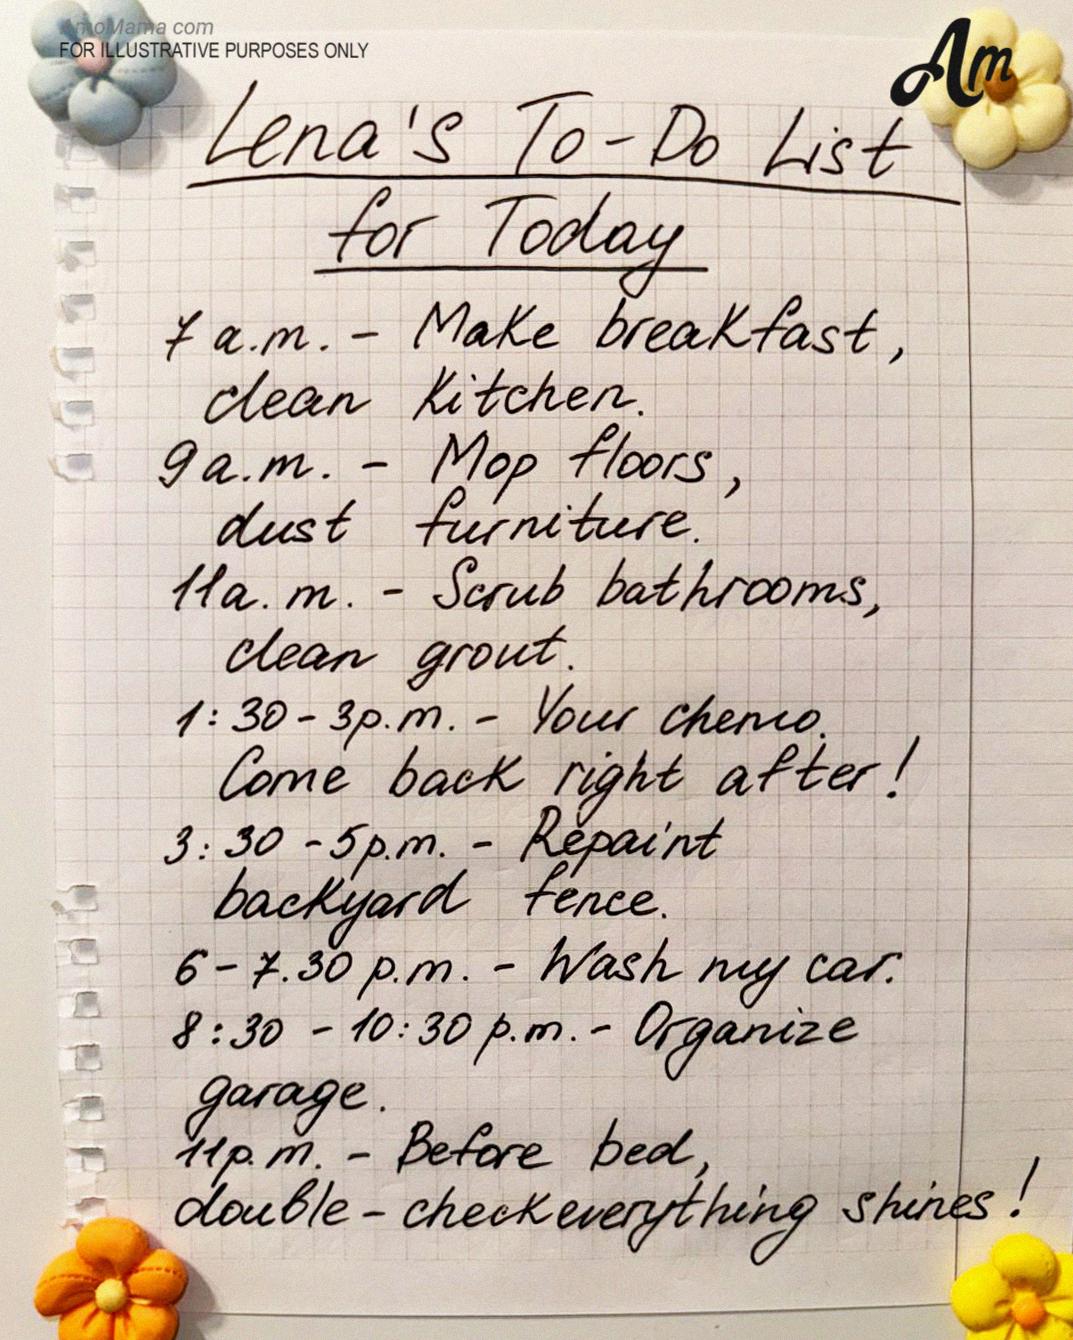 AmoMama com
FOR ILLUSTRATIVE PURPOSES ONLY
Am
Lena's To-Do List
for Today
7 a.m. - Make breakfast,
clean kitchen.
9 a.m. - Mop floors,
dust furniture.
11 a.m. - Scrub bathrooms,
clean grout.
1:30 - 3 p.m. - Your chemo.
Come back right after!
3:30 - 5 p.m. - Repaint
backyard fence.
6 - 7.30 p.m. - Wash my car.
8:30 - 10:30 p.m. - Organize
garage.
11 p.m. - Before bed,
double-check everything shines!